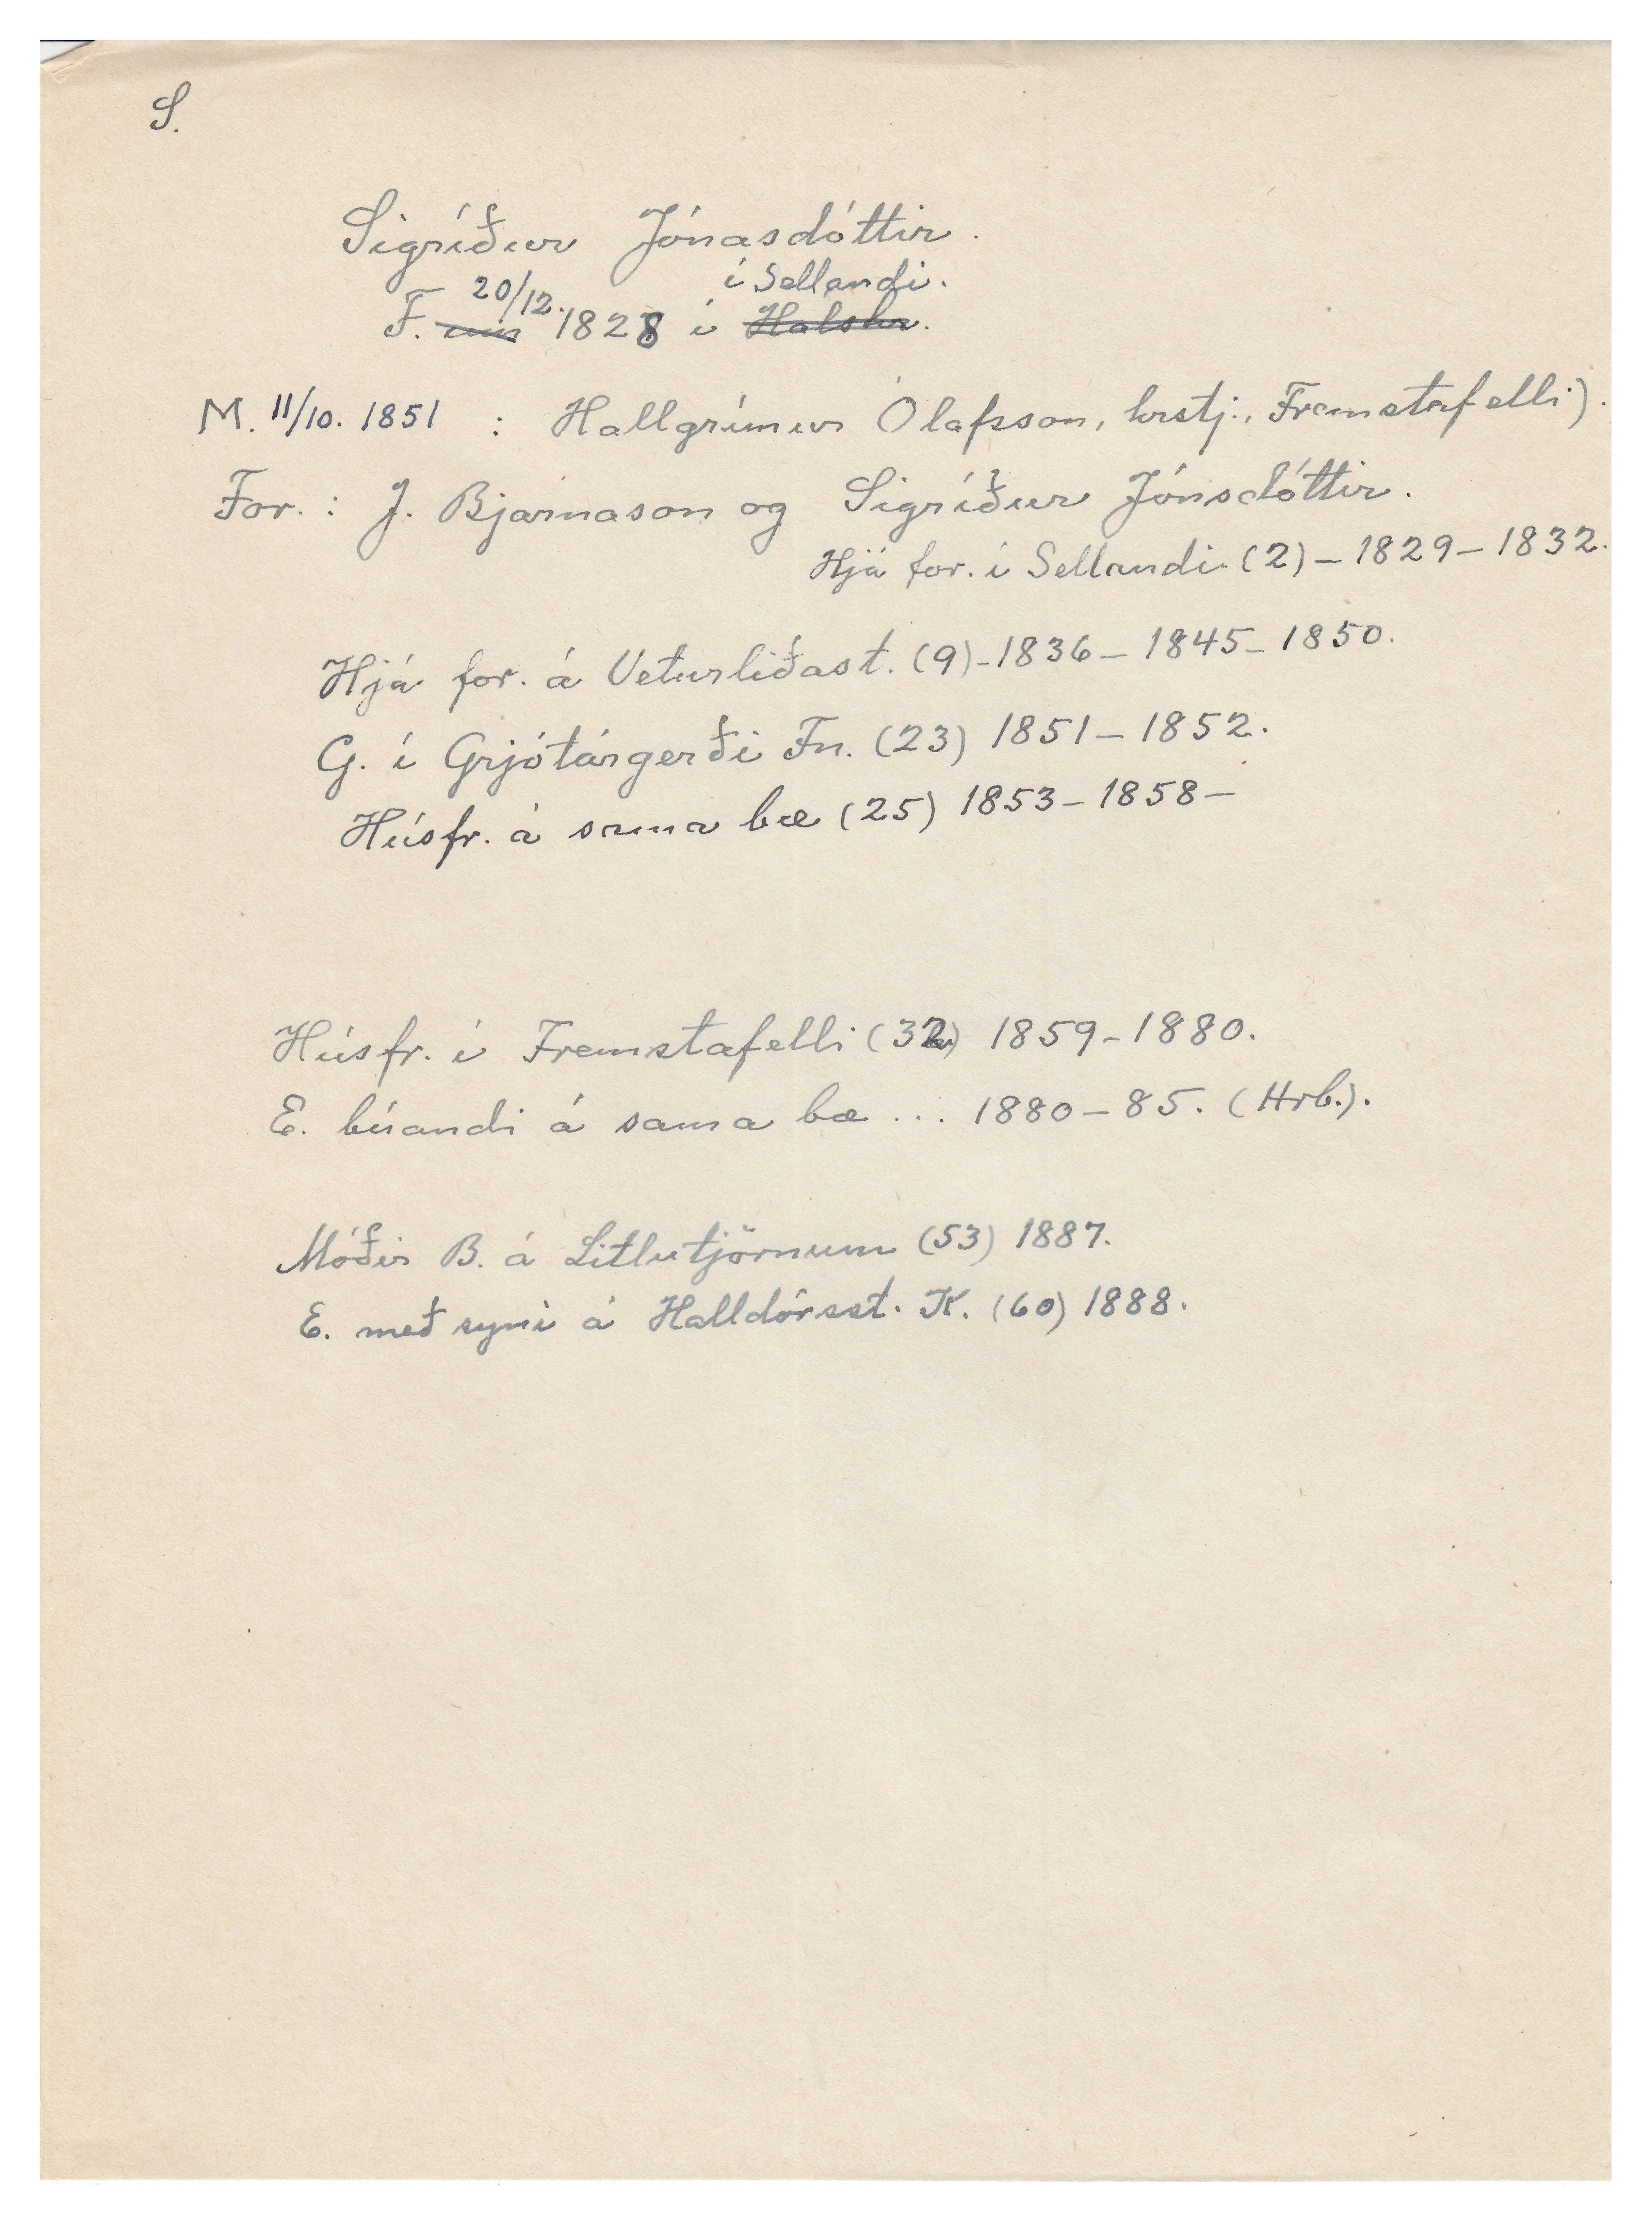 S.
Sigríður Jónasdóttir.
í Sellandi.
F. 20/12. 1828 í Hálshr.
M. 11/10. 1851 : Hallgrímur Ólafsson, hrstj., Fremstafelli).
For. : J. Bjarnason og Sigríður Jónsdóttir.
Hjá for. í Sellandi (2) – 1829 – 1832.
Hjá for. á Veturliðast. (9) – 1836 – 1845 – 1850.
G. í Grjótárgerði Fn. (23) 1851 – 1852.
Húsfr. á sama bæ (25) 1853 – 1858 –
Húsfr. í Fremstafelli (32) 1859 – 1880.
E. búandi á sama bæ ... 1880 – 85. (Hrb.).
Móðir B. á Litlutjörnum (53) 1887.
E. með syni á Halldórsst. K. (60) 1888.